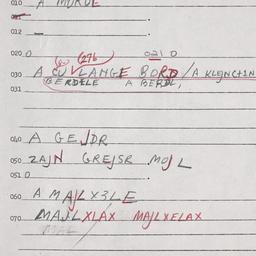 010 A MURDE
011
012
020 0 021 0
030 A CU LANGE BORD / A KLEJNCTJN
031 BERDELE A BERDL,
040 A GEJDR
050 ZAJN GREJSR MOJL
051 0
060 A MAJLX3LE
070 MAJLXLAX MAJLXELAX